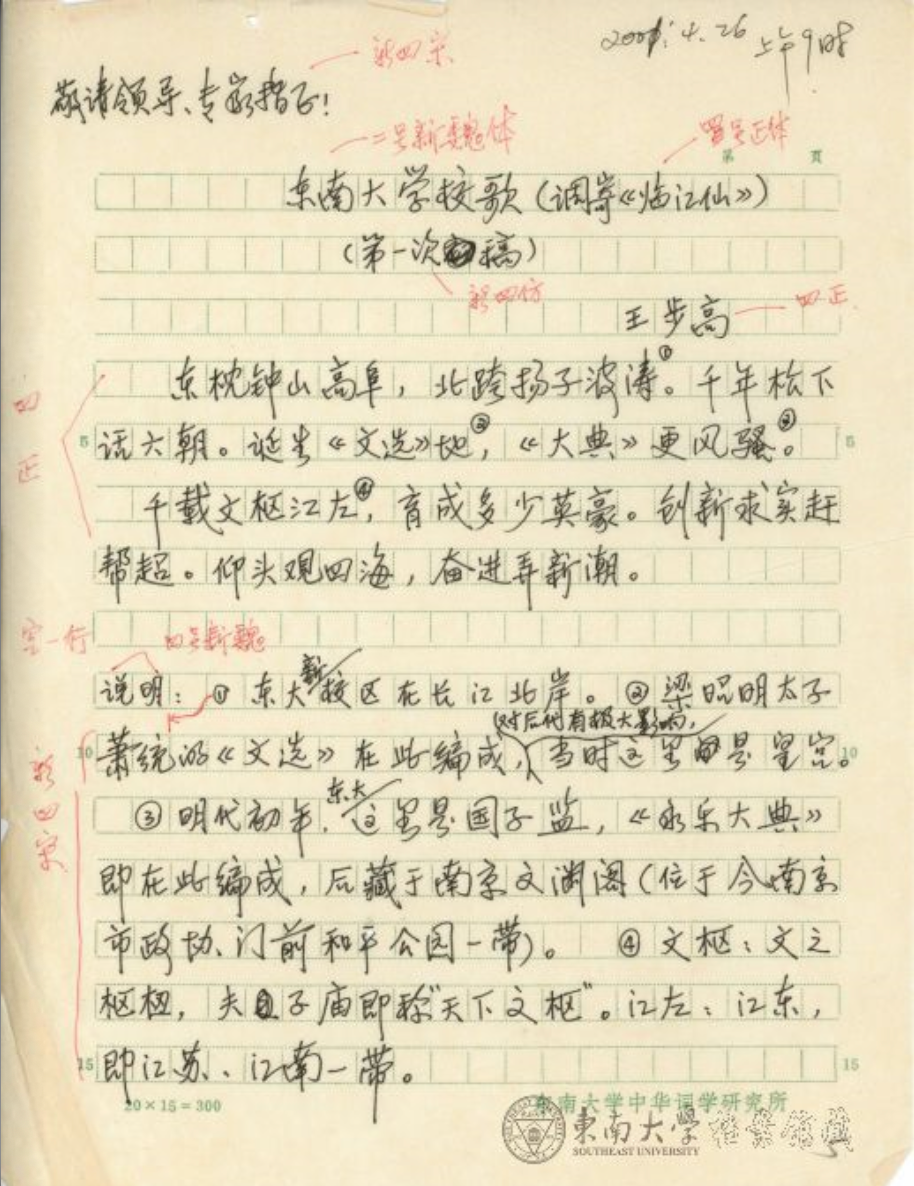 2001.4.26 上午9时
新四宋
敬请领导、专家指正!
二号新魏体
四号正体
第 页
东南大学校歌(调寄《临江仙》)
(第一次稿)
新四仿
王步高
四正
东枕钟山高阜,北跨扬子波涛①。千年松下
四正
5 话六朝。诞生《文选》地②,《大典》更风骚③。 5
千载文枢江左④,育成多少英豪。创新求实赶
帮超。仰头观四海,奋进弄新潮。
空一行
四号新魏
说明:① 东大新校区在长江北岸。②梁昭明太子
对后代有极大影响,
10 萧统的《文选》在此编成,当时这里是皇宫。 10
新四宋
③明代初年,东大这里是国子监,《永乐大典》
即在此编成,后藏于南京文渊阁(位于今南京
市政协、门前和平公园一带)。 ④文枢:文之
枢纽,夫子庙即称"天下文枢"。江左:江东,
15 即江苏、江南一带。 15
20×15=300
东南大学中华词学研究所
東南大學
SOUTHEAST UNIVERSITY